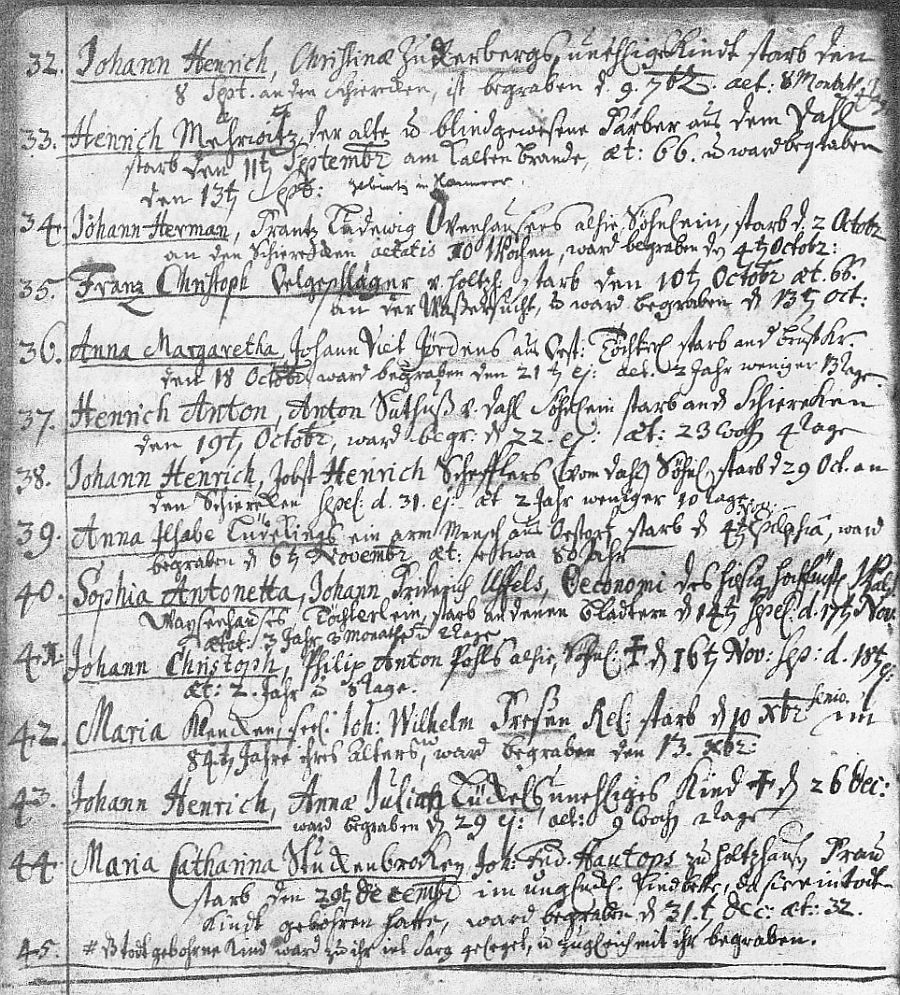 32. Johann Henrich, Christinæ Zuckerbergs, unehliges Kindt starb den
8 Sept. an den Schiercken, ist begraben d. 9. 7br. aet: 8 Monat
33. Henrich Mehrwitz, der alte u blindgewesene Färber aus dem Dahl
starb den 11t Septembr am kalten Brande, æt: 66. u ward begraben
den 13t Sept:
34. Johann Herman, Frantz Ludewig Ovenhausens alhie Söhnlein, starb d. 2 Octobr
an den Schiercken aetatis 10 Wochen, ward begraben den 4t Octobr:
35. Franz Christoph Velgephlager v. Holtzh. starb den 10t Octobr æt. 66.
an der Waßersucht, u ward begraben d 13t Oct:
36. Anna Margaretha, Johann Jördens aus Töchterl starb
den 18 Octobr, ward begraben den 21t ej: aet. 2 Jahr weniger 13 Tage
37. Henrich Anton, Anton v. Dahl Söhnlein starb an d Schiercken
den 19t Octobr, ward begr: d 22. ej: æt: 23 Woch 4 Tage
38. Johann Henrich, Jobst Henrich Schefflers (vom Dahl) Söhnl. starb d 29 Oct. an
den Schiercken sepel: d. 31. ej. æt 2 Jahr weniger 10 Tage.
39. Anna Ilsabe Lüdelings ein arm Mensch aus starb d 4t, ward
begraben d 6t Novembr æt: etwa 80 Jahr
40. Sophia Antonetta, Johann Friderich Uffels, Oeconomi des hiesig
Wayssenhauses Töchterlein, starb an denen Bladtern d 14t sepel: d. 17t Nov:
ætat: 3 Jahr 3 Monathe u 2 Tage
41. Johann Christoph, Philip Anton Pohls alhie, Söhnl: † d 16t Nov: sep: d. 18t ej.
æt: 2. Jahr u 8 Tage.
42. Maria seel. Joh: Wilhelm Fresen Rel: starb d 10 Xbr im
84t Jahre ihres Alters, ward begraben den 13. Xbr:
43. Johann Henrich, Annæ Julian Lückels unehliges Kind † d 26 Dec:
ward begraben d 29 ej: aet: 9 Woch 2 Tage
44. Maria Catharina Stuckenbroken, Joh: Frid. Hautops zu Holtzhausen Frau
starb den 29t Decembr im Kindbette, da sie ein todt
Kindt gebohren hatte, ward begraben d 31.t Dec: æt: 32.
45. # Das todtgebohrne Kind ward zu ihr ins Sarg geleget, u zugleich mit ihr begraben.